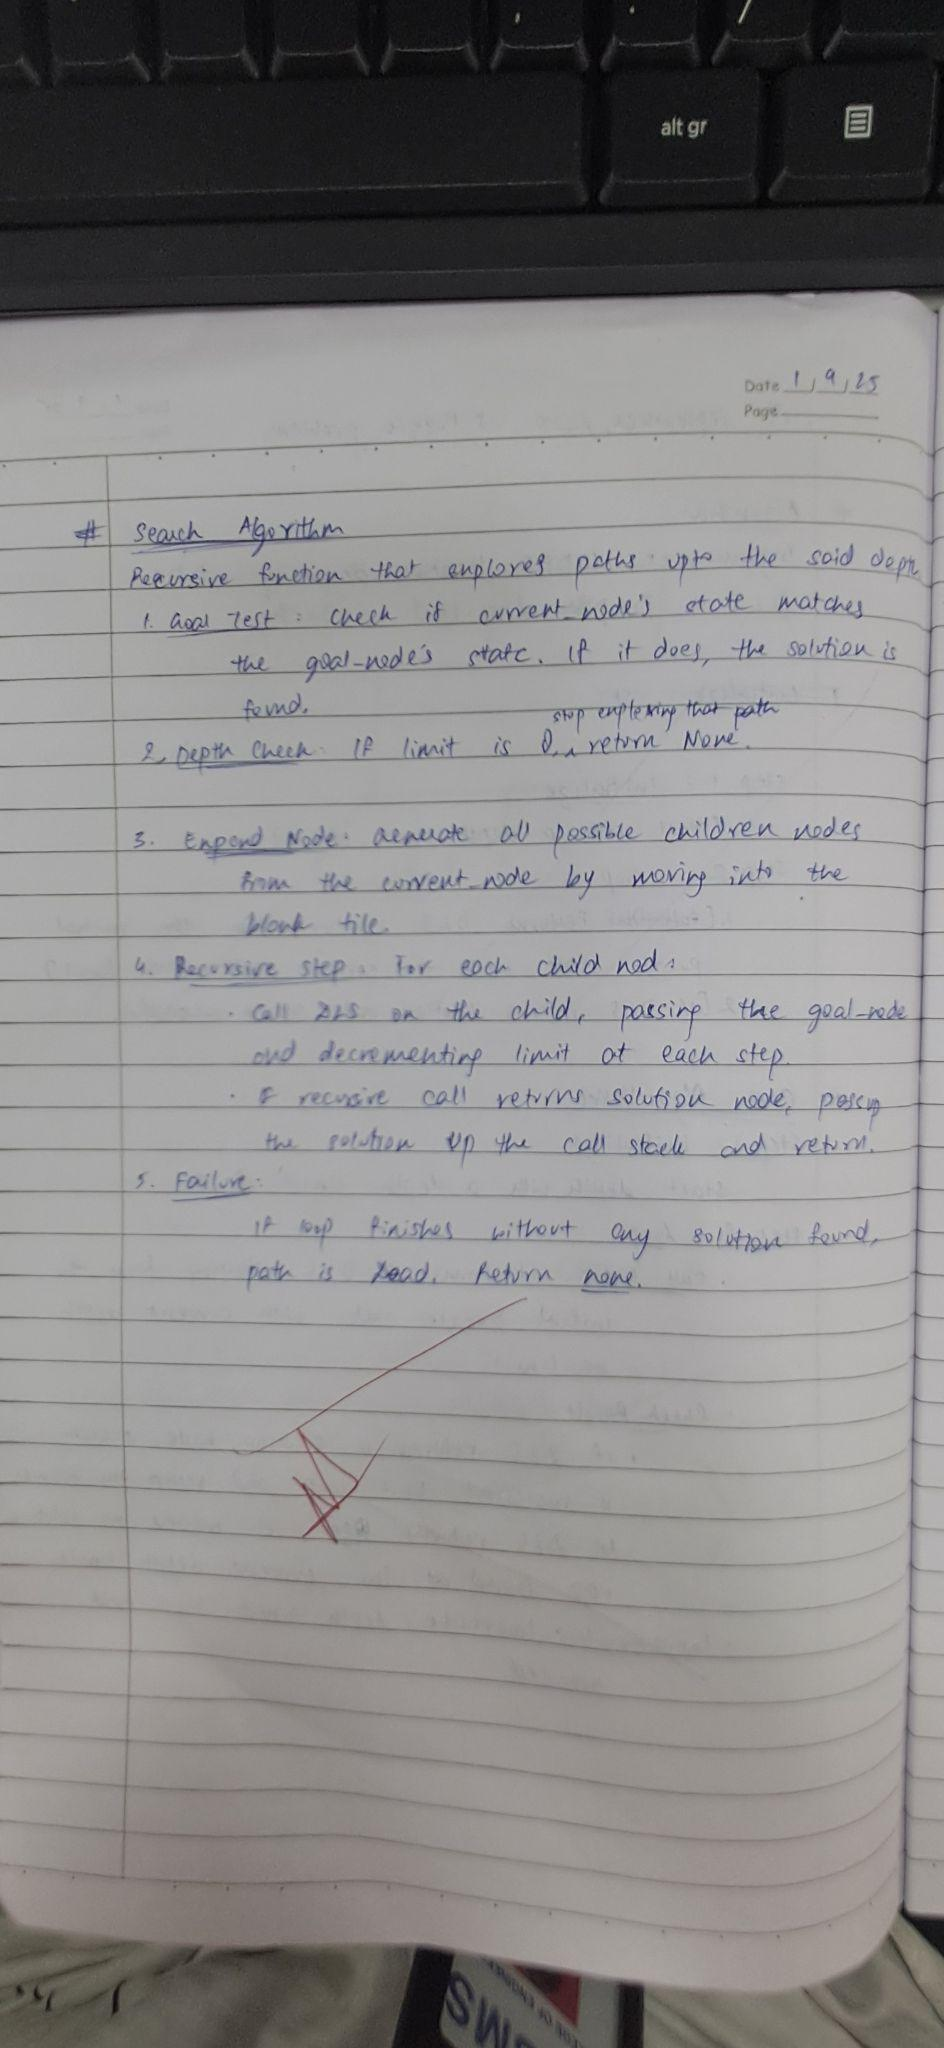 alt gr
Date 1/9/25
Page
# Search Algorithm
Recursive function that explores paths upto the said depth
1. Goal Test : Check if current_node's state matches
the goal-node's state. If it does, the solution is
found.
stop exploring that path
2. Depth Check: If limit is 0, ^ return None.
3. Expand Node: Generate all possible children nodes
from the current_node by moving into the
blank tile.
4. Recursive step: For each child nod:
· Call DLS on the child, passing the goal-node
and decrementing limit at each step.
· If recursive call returns solution node, pass up
the solution up the call stack and return.
5. Failure:
If loop finishes without any solution found,
path is dead. Return none.